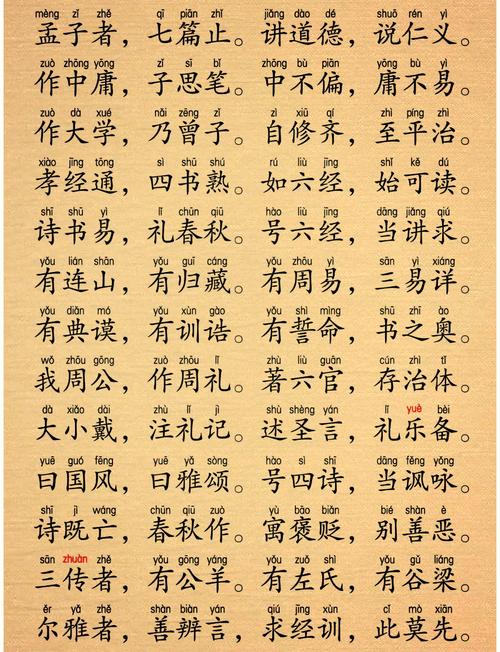 mèng zǐ zhě qī piān zhǐ jiǎng dào dé shuō rén yì
孟子者，七篇止。讲道德，说仁义。
zuò zhōng yōng zǐ sī bǐ zhōng bù piān yōng bù yì
作中庸，子思笔。中不偏，庸不易。
zuò dà xué nǎi zēng zǐ zì xiū qí zhì píng zhì
作大学，乃曾子。自修齐，至平治。
xiào jīng tōng sì shū shú rú liù jīng shǐ kě dú
孝经通，四书熟。如六经，始可读。
shī shū yì lǐ chūn qiū hào liù jīng dāng jiǎng qiú
诗书易，礼春秋。号六经，当讲求。
yǒu lián shān yǒu guī cáng yǒu zhōu yì sān yì xiáng
有连山，有归藏。有周易，三易详。
yǒu diǎn mó yǒu xùn gào yǒu shì mìng shū zhī ào
有典谟，有训诰。有誓命，书之奥。
wǒ zhōu gōng zuò zhōu lǐ zhù liù guān cún zhì tǐ
我周公，作周礼。著六官，存治体。
dà xiǎo dài zhù lǐ jì shù shèng yán lǐ yuè bèi
大小戴，注礼记。述圣言，礼乐备。
yuē guó fēng yuē yǎ sòng hào sì shī dāng fěng yǒng
曰国风，曰雅颂。号四诗，当讽咏。
shī jì wáng chūn qiū zuò yù bāo biǎn bié shàn è
诗既亡，春秋作。寓褒贬，别善恶。
sān zhuàn zhě yǒu gōng yáng yǒu zuǒ shì yǒu gǔ liáng
三传者，有公羊。有左氏，有谷梁。
ěr yǎ zhě shàn biàn yán qiú jīng xùn cǐ mò xiān
尔雅者，善辨言，求经训，此莫先。